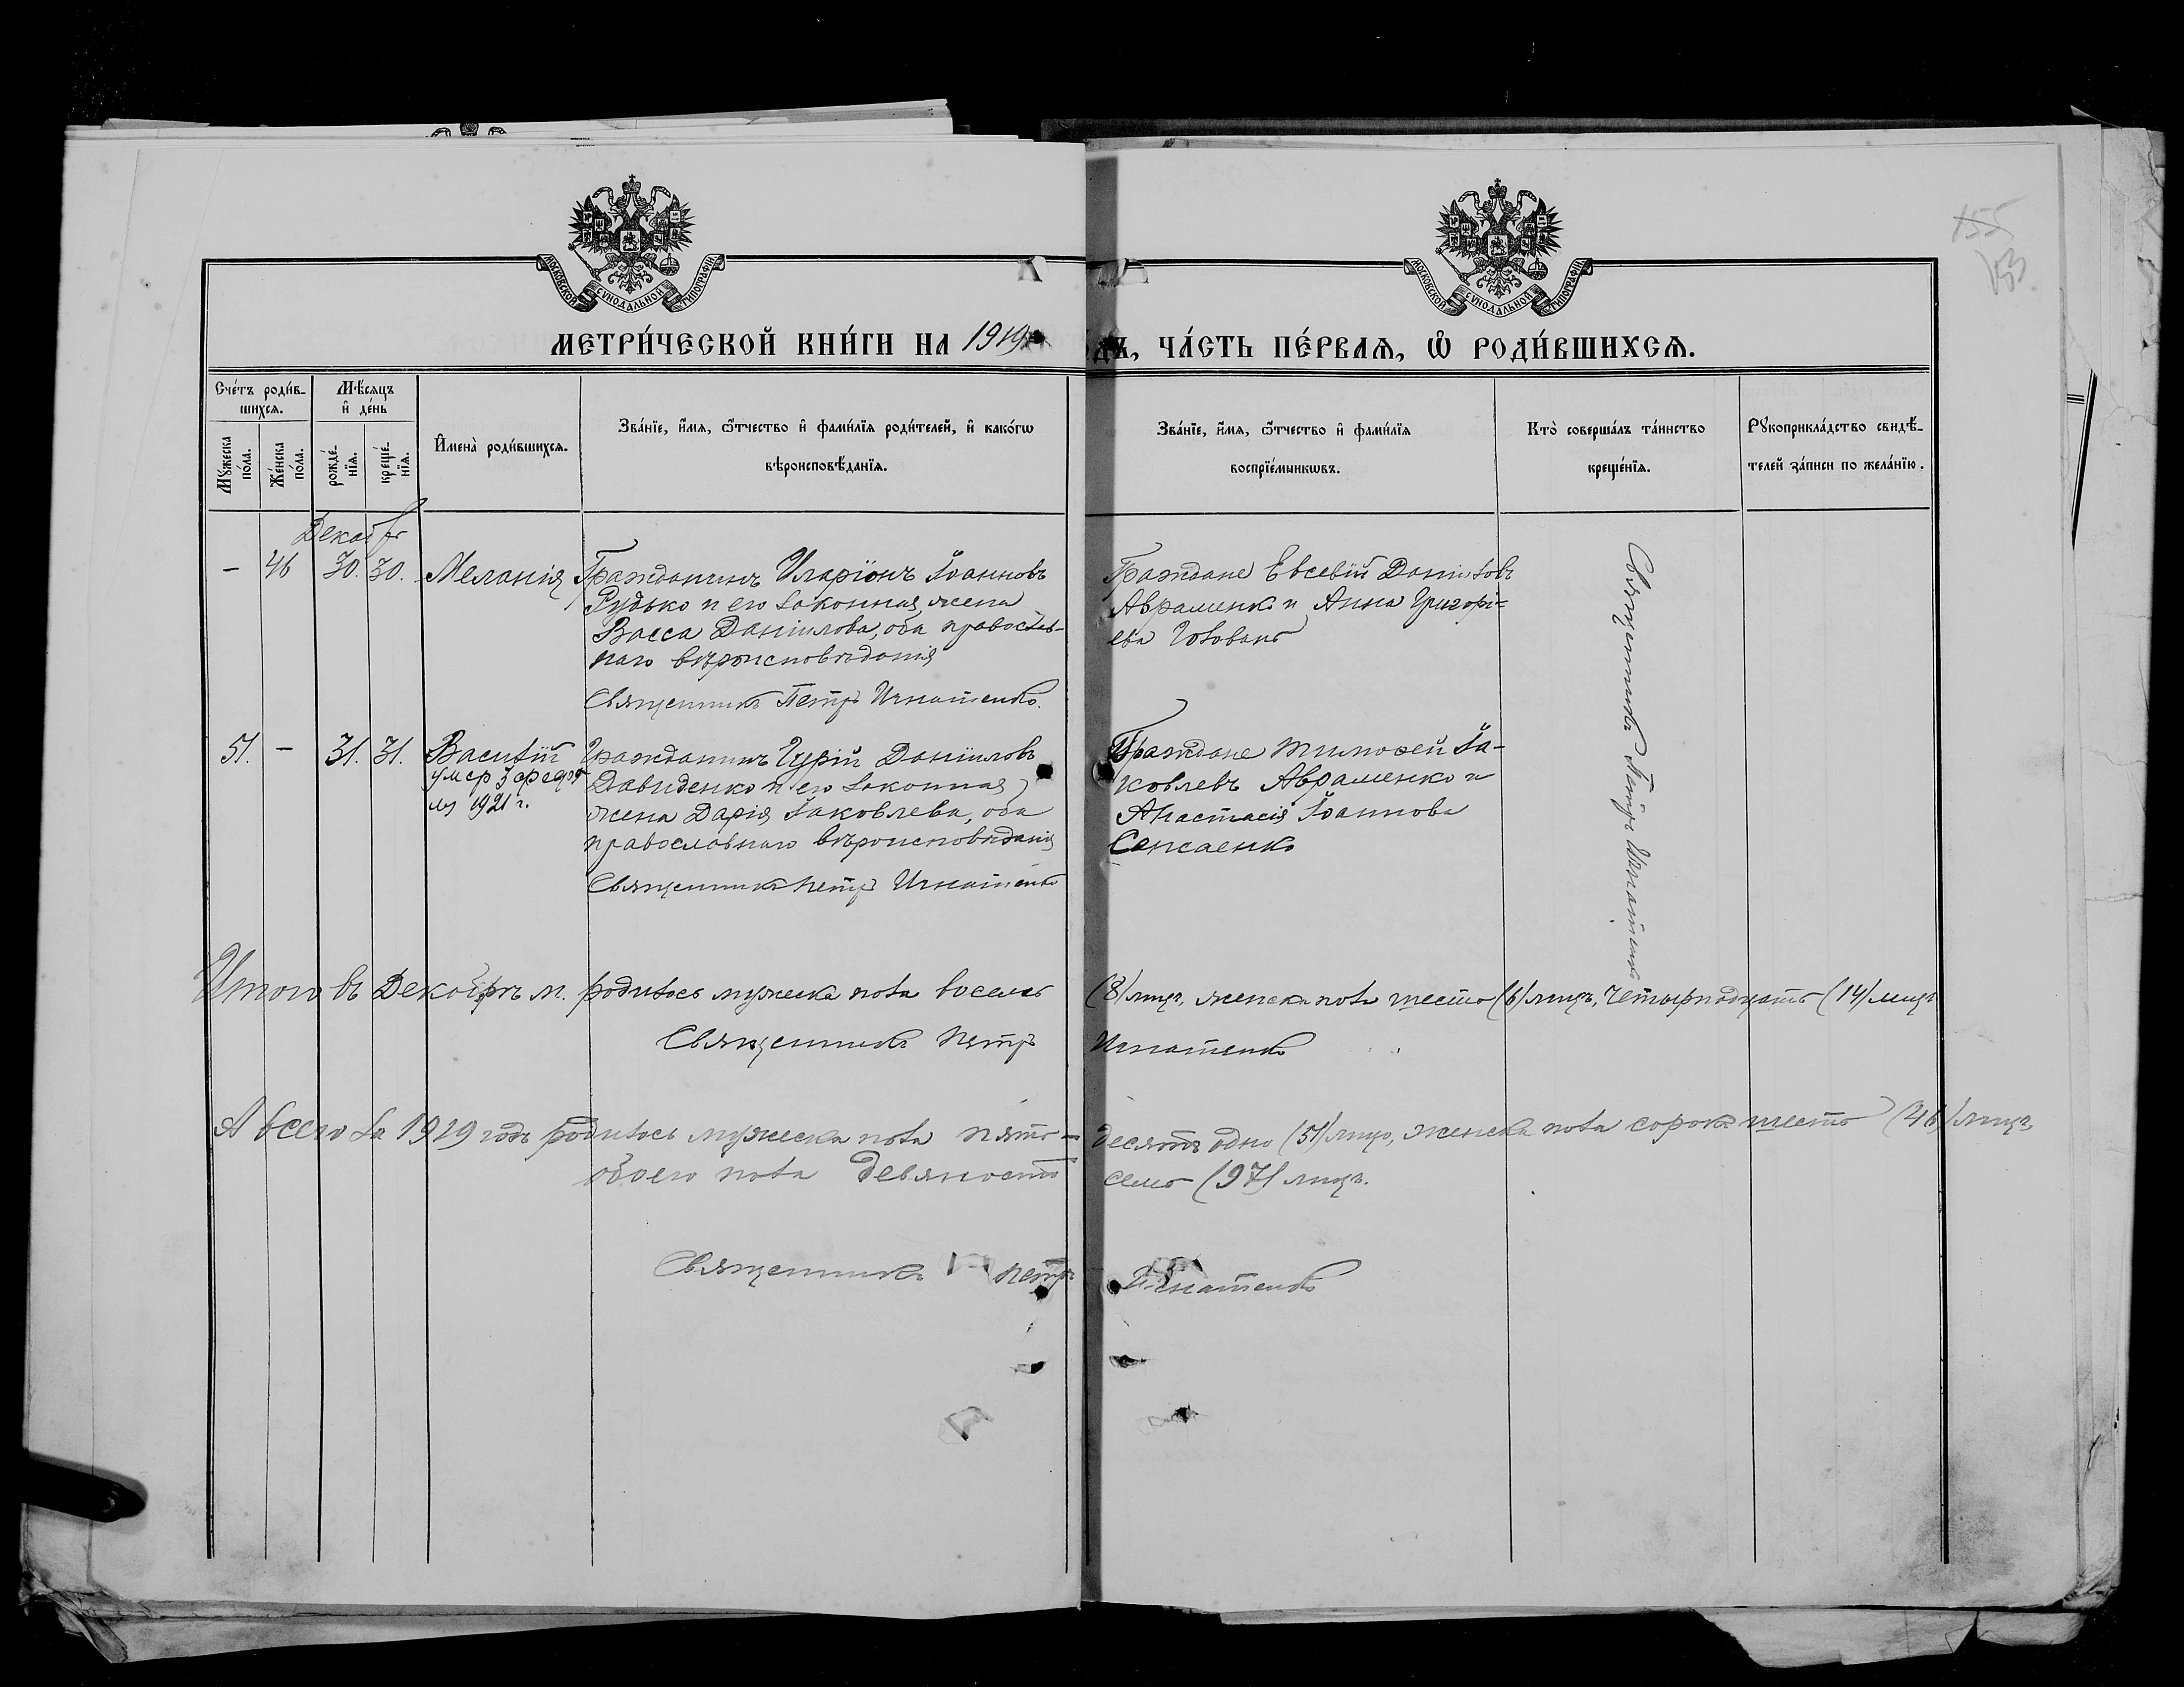 МОСКОВСКОЙ СѴНОДАЛЬНОЙ ТИПОГРАФІИ
МОСКОВСКОЙ СѴНОДАЛЬНОЙ ТИПОГРАФІИ
155
МЕТРИ́ЧЕСКОЙ КНИ́ГИ НА 1919
ДЪ, ЧА́СТЬ ПЕ́РВАЯ, Ѡ РОДИ́ВШИХСЯ.
Сче́тъ роди́в-
шихсѧ.
Мѣ́сѧцъ
и҆ де́нь
Мꙋ́жеска
по́ла.
Же́нска
по́ла.
рожде́-
нїѧ.
креще́-
нїѧ.
И҆мена̀ роди́вшихсѧ.
Зва́нїе, и҆́мѧ, ѻ҆́тчество и҆ фами́лїѧ роди́телей, и҆ како́гѡ
вѣроисповѣ́данїѧ.
Зва́нїе, и҆́мѧ, ѻ҆́тчество и҆ фами́лїѧ
воспрїе́мникѡвъ.
Кто̀ соверша́лъ та́инство
креще́нїѧ.
Рꙋкоприкла́дство свидѣ́-
телей за́писи по жела́нїю.
– 46 30. 30. Меланія
Гражданинъ Иларіонъ Іоанновъ
Рудько и его законная жена
Васса Даніилова, оба православ-
наго вѣроисповѣданія
Священникъ Петръ Игнатенко.
Граждане Евсевій Даніиловъ
Авраменко и Анна Григорі=
ева
Священникъ Петръ Игнатенко
51. – 31. 31. Василій
умер 3
1921 г.
Гражданинъ Гурій Даніиловъ
Давиденко и его законная
жена Дарія Іаковлева, оба
православнаго вѣроисповѣданія
Священникъ Петръ Игнатенко
Граждане Тимоѳей Іа-
ковлевъ Авраменко и
Анастасія Іоаннова
Итого въ Декабрѣ м. родилось мужеска пола восемь
(8) лицъ, женска пола шесть (6) лицъ, четырнадцать (14) лицъ
Священникъ Петръ
Игнатенко
А всего за 1919 годъ родилось мужеска пола пять-
десятъ одно (51) лицо, женска пола сорокъ шесть (46) лицъ,
обоего пола девяносто
семь (97) лицъ.
Священникъ Петръ
Игнатенко